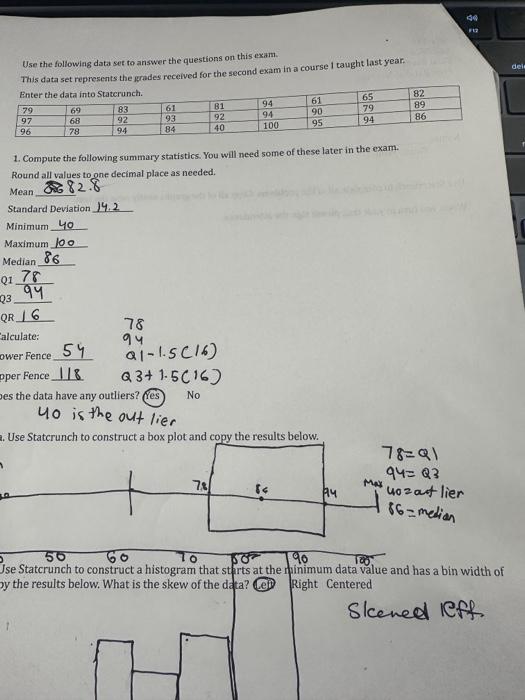 F12
dele
Use the following data set to answer the questions on this exam.
This data set represents the grades received for the second exam in a course I taught last year.
Enter the data into Statcrunch.
79 69 83 61 81 94 61 65 82
97 68 92 93 92 94 90 79 89
96 78 94 84 40 100 95 94 86
1. Compute the following summary statistics. You will need some of these later in the exam.
Round all values to one decimal place as needed.
Mean 82.8
Standard Deviation 14.2
Minimum 40
Maximum 100
Median 86
Q1 78
Q3 94
QR 16
alculate:
78
94
ower Fence 54 Q1-1.5(16)
pper Fence 118 Q3+1.5(16)
oes the data have any outliers? Yes No
40 is the out lier
. Use Statcrunch to construct a box plot and copy the results below.
78=Q1
94=Q3
Max 40=out lier
86=median
78 86 94
50 60 70 80 90 100
Use Statcrunch to construct a histogram that starts at the minimum data value and has a bin width of
py the results below. What is the skew of the data? Left Right Centered
Skewed left.